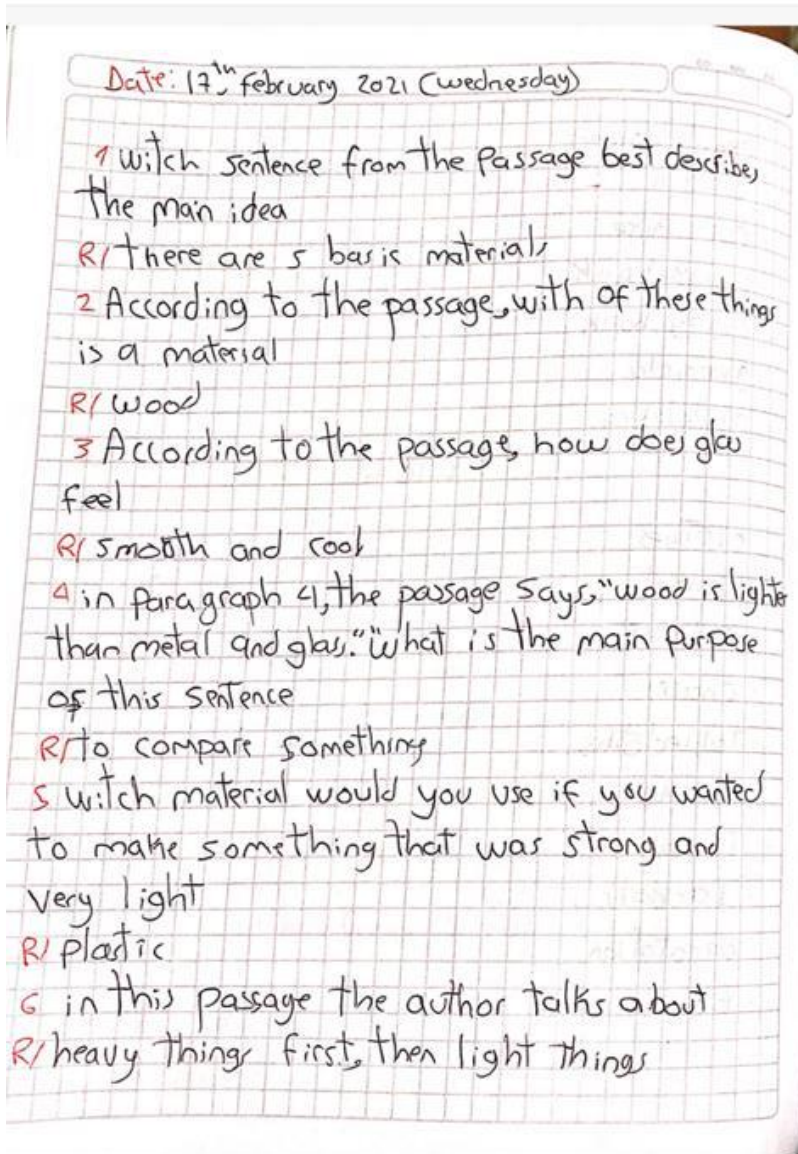 Date: 17th february 2021 (wednesday)
1 witch sentence from the Passage best describes
the main idea
R/ there are 5 basic materials
2 According to the passage, with of these things
is a material
R/ wood
3 According to the passage, how does glass
feel
R/ smooth and cool
4 in Paragraph 4, the passage says, "wood is lighter
than metal and glass." "what is the main Purpose
of this sentence
R/ to compare something
5 witch material would you use if you wanted
to make something that was strong and
very light
R/ plastic
6 in this passage the author talks about
R/ heavy things first, then light things